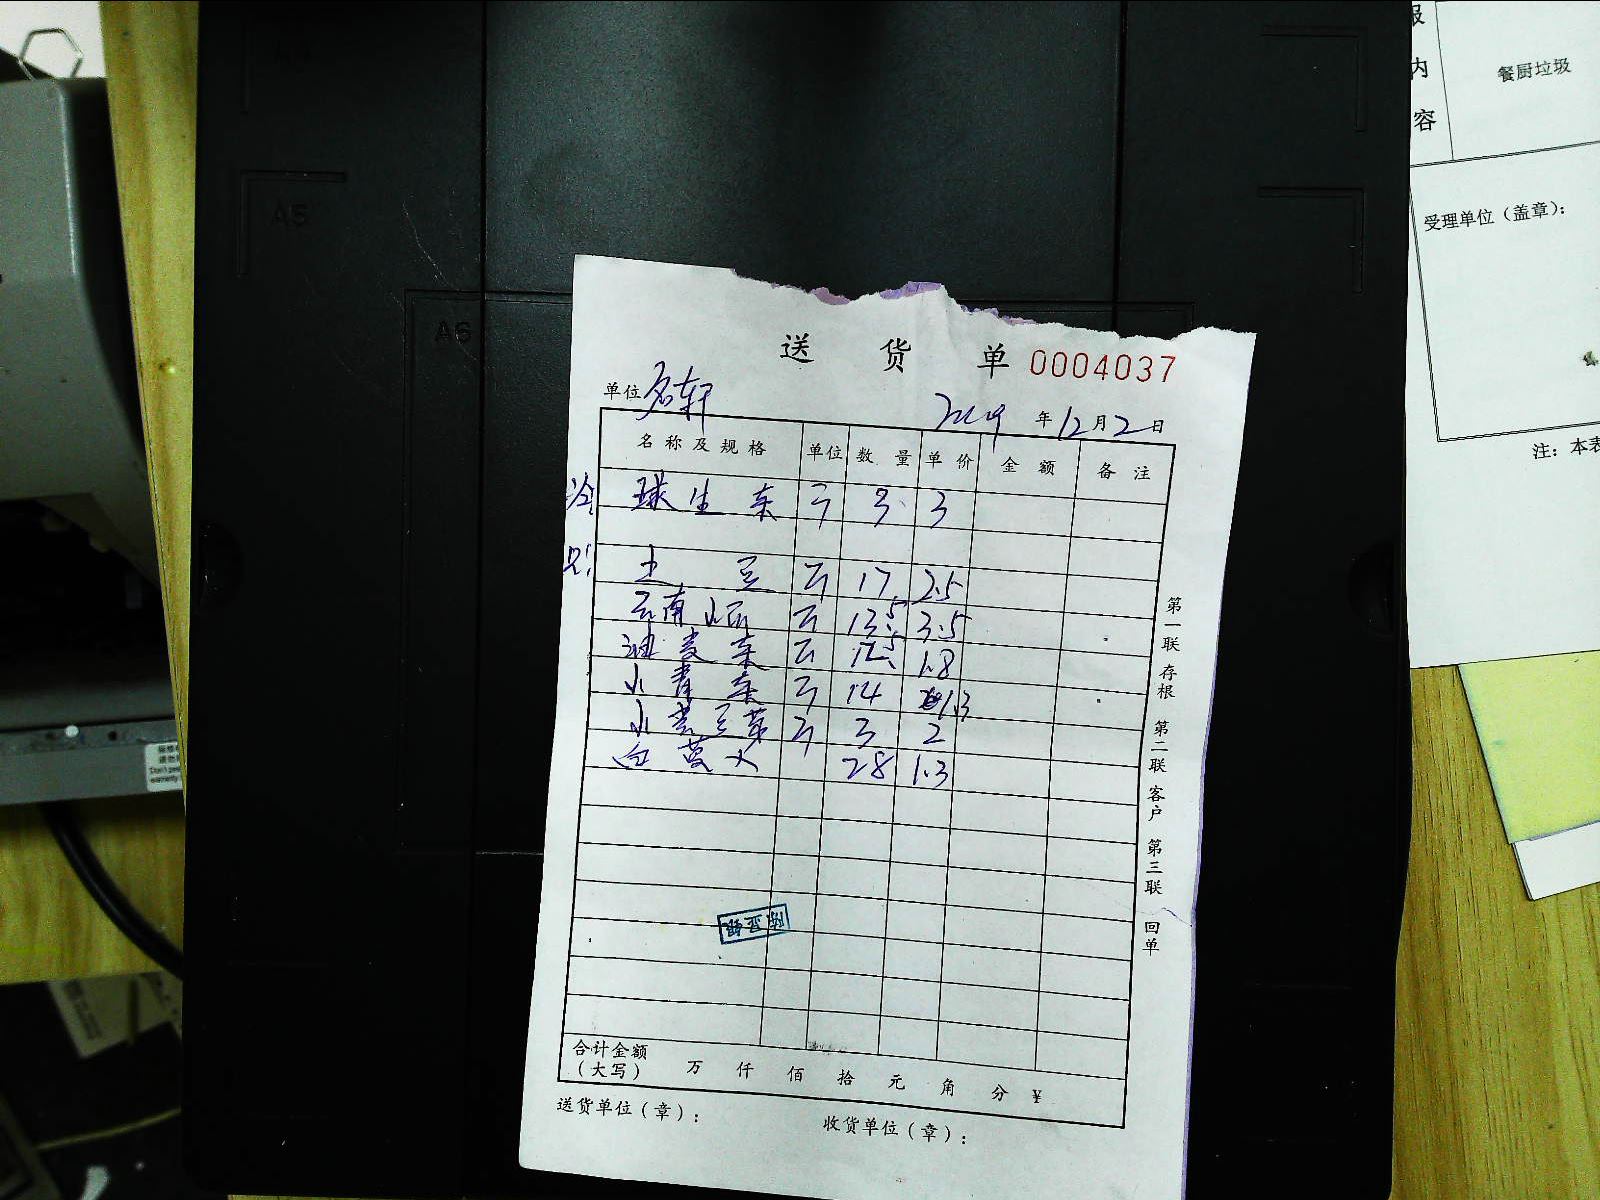 A5
A6
服
内
容
餐厨垃圾
受理单位（盖章）：
注：本表
送货单 0004037
单位 名轩 2019 年 12 月 2 日
名称及规格 单位 数量 单价 金额 备注
冷 球生菜 斤 3 3
土豆 斤 17 2.5
云南 斤 13.5 3.5
油麦菜 斤 12.5 1.8
小青菜 斤 14 1.3
小黄豆芽 斤 3 2
白萝卜 28 1.3
合计金额（大写） 万 仟 佰 拾 元 角 分 ¥
送货单位（章）：
收货单位（章）：
第一联 存根 第二联 客户 第三联 回单